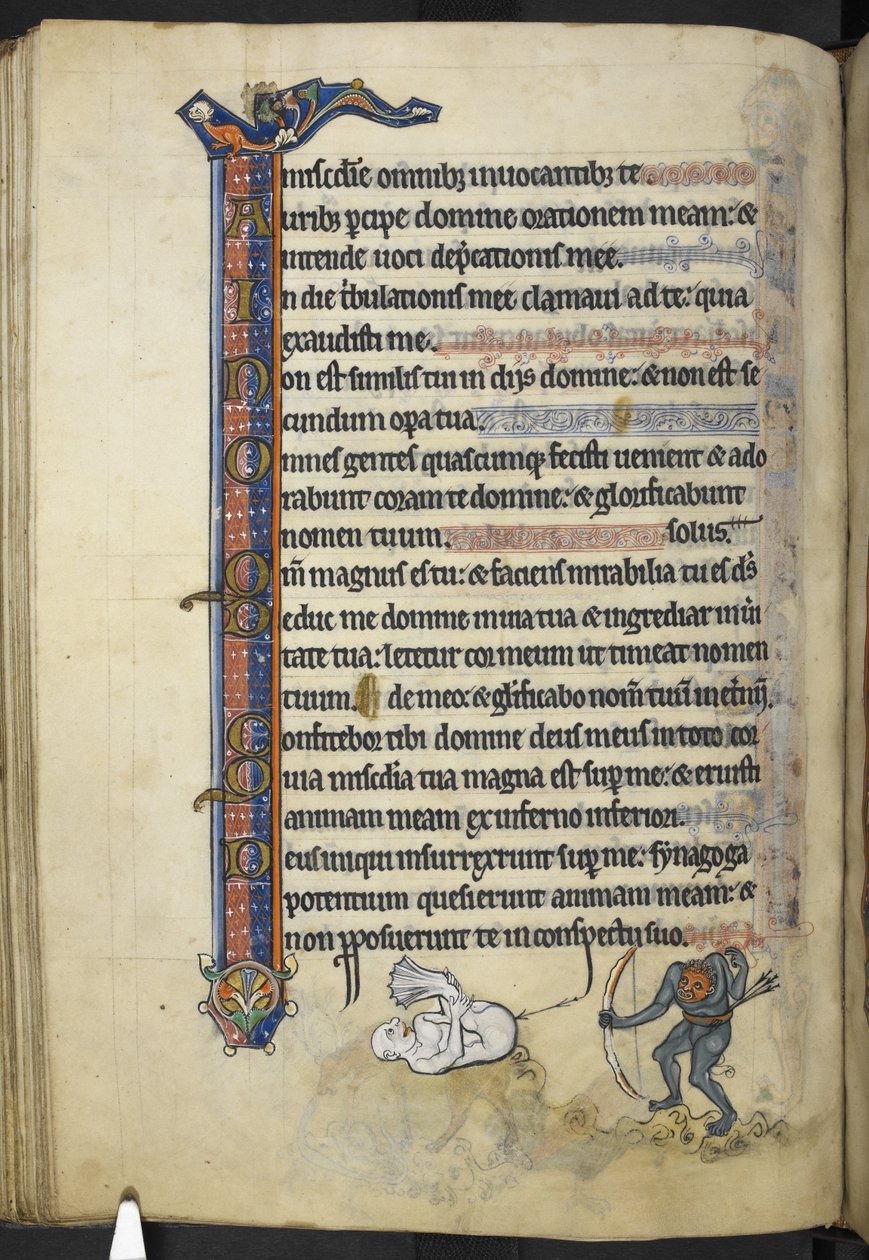 mis̄cdie omnibꝫ inuocantibꝫ te
Auribꝫ ꝑcipe domine orationem meam: &
intende uoci dep̄cationis mee.
In die t̾bulationis mee clamaui ad te: quia
exaudisti me.
Non est similis tui in dijs domine: & non est se
cundum oꝑa tua.
Omnes gentes quascumqꝫ fecisti uenient & ado
rabunt coram te domine: & glorificabunt
nomen tuum. solus.
Qm̄ magnus es tu: & faciens mirabilia tu es ds̄
Deduc me domine in uia tua & ingrediar in ui̾
tate tua: letetur cor meum ut timeat nomen
tuum. de meo: & gl̾ificabo nom̄ tuū in et̾nū.
Confitebor tibi domine deus meus in toto cor
Quia misc̄dia tua magna est suꝑ me: & eruisti
animam meam ex inferno inferiori.
Deus iniqui insurrexerunt suꝑ me: synagoga
potentium quesierunt animam meam: &
non ꝓposuerunt te in conspectu suo.